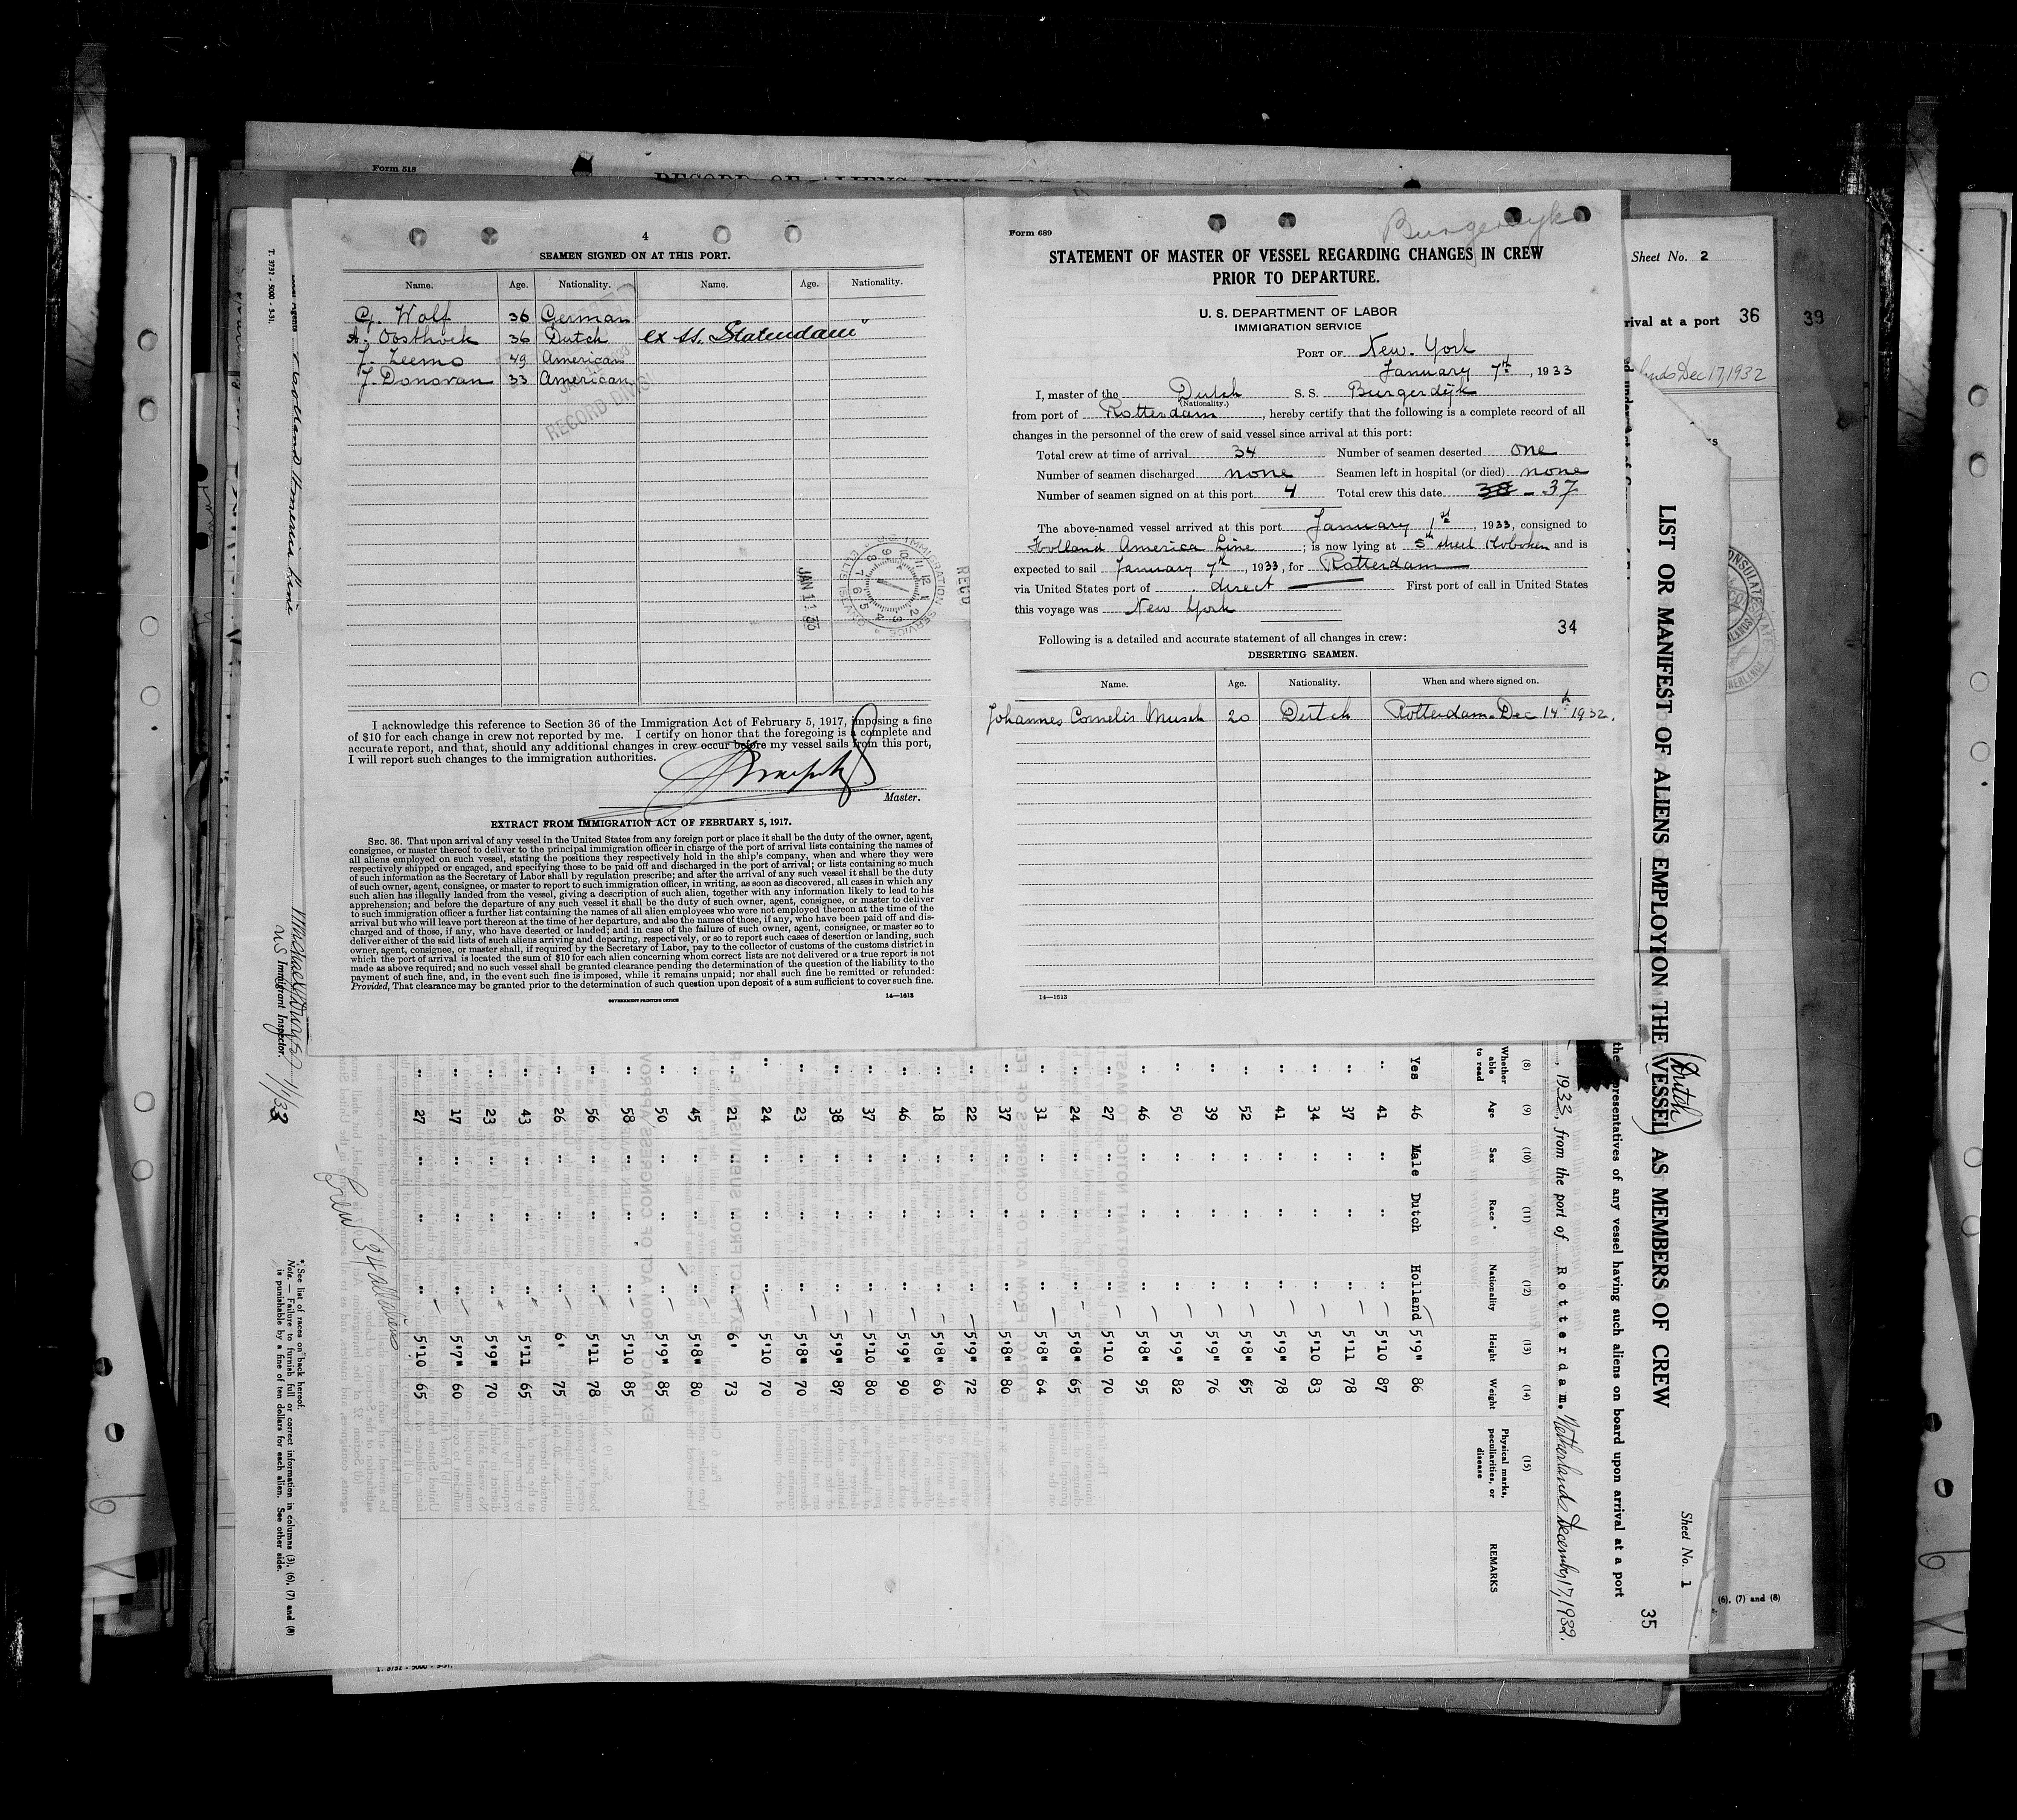 Form 518
4
SEAMEN SIGNED ON AT THIS PORT.
Name. Age. Nationality. Name. Age. Nationality.
G. Wolf 36 German
A. Oosthoek 36 Dutch ex ss. "Statendam"
J. Zeemo 49 American
J. Donovan 33 American
RECORD DIVISI
JAN 11 33
I acknowledge this reference to Section 36 of the Immigration Act of February 5, 1917, imposing a fine
of $10 for each change in crew not reported by me. I certify on honor that the foregoing is a complete and
accurate report, and that, should any additional changes in crew occur before my vessel sails from this port,
I will report such changes to the immigration authorities.
Master.
EXTRACT FROM IMMIGRATION ACT OF FEBRUARY 5, 1917.
SEC. 36. That upon arrival of any vessel in the United States from any foreign port or place it shall be the duty of the owner, agent,
consignee, or master thereof to deliver to the principal immigration officer in charge of the port of arrival lists containing the names of
all aliens employed on such vessel, stating the positions they respectively hold in the ship's company, when and where they were
respectively shipped or engaged, and specifying those to be paid off and discharged in the port of arrival; or lists containing so much
of such information as the Secretary of Labor shall by regulation prescribe; and after the arrival of any such vessel it shall be the duty
of such owner, agent, consignee, or master to report to such immigration officer, in writing, as soon as discovered, all cases in which any
such alien has illegally landed from the vessel, giving a description of such alien, together with any information likely to lead to his
apprehension; and before the departure of any such vessel it shall be the duty of such owner, agent, consignee, or master to deliver
to such immigration officer a further list containing the names of all alien employees who were not employed thereon at the time of the
arrival but who will leave port thereon at the time of her departure, and also the names of those, if any, who have been paid off and dis-
charged and of those, if any, who have deserted or landed; and in case of the failure of such owner, agent, consignee, or master so to
deliver either of the said lists of such aliens arriving and departing, respectively, or so to report such cases of desertion or landing, such
owner, agent, consignee, or master shall, if required by the Secretary of Labor, pay to the collector of customs of the customs district in
which the port of arrival is located the sum of $10 for each alien concerning whom correct lists are not delivered or a true report is not
made as above required; and no such vessel shall be granted clearance pending the determination of the question of the liability to the
payment of such fine, and, in the event such fine is imposed, while it remains unpaid; nor shall such fine be remitted or refunded:
Provided, That clearance may be granted prior to the determination of such question upon deposit of a sum sufficient to cover such fine.
GOVERNMENT PRINTING OFFICE 14—1613
Burgerdyk
Form 689
STATEMENT OF MASTER OF VESSEL REGARDING CHANGES IN CREW
PRIOR TO DEPARTURE.
U. S. DEPARTMENT OF LABOR
IMMIGRATION SERVICE
PORT OF New-York
January 7th, 1933
I, master of the Dutch S. S. Burgerdijk
(Nationality.)
from port of Rotterdam, hereby certify that the following is a complete record of all
changes in the personnel of the crew of said vessel since arrival at this port:
Total crew at time of arrival 34 Number of seamen deserted one
Number of seamen discharged none Seamen left in hospital (or died) none
Number of seamen signed on at this port 4 Total crew this date 38 - 37
The above-named vessel arrived at this port January 1st, 1933, consigned to
Holland America Line; is now lying at 5th street Hoboken and is
expected to sail January 7th, 1933, for Rotterdam
via United States port of direct First port of call in United States
this voyage was New York
34
Following is a detailed and accurate statement of all changes in crew:
DESERTING SEAMEN.
Name. Age. Nationality. When and where signed on.
Johannes Cornelis Musch 20 Dutch Rotterdam. Dec 14th 1932.
14—1613
Sheet No. 2
rival at a port 36 39
Dec 17, 1932
(6), (7) and (8)
Sheet No. 1
35
LIST OR MANIFEST OF ALIENS EMPLOYED ON THE VESSEL AS MEMBERS OF CREW
(Dutch)
representatives of any vessel having such aliens on board upon arrival at a port
, 1933, from the port of Rotterdam. Netherlands December 17, 1932.
(8) (9) (10) (11) (12) (13) (14) (15)
Whether able to read Age Sex Race * Nationality Height Weight Physical marks, peculiarities, or disease REMARKS
Yes 46 Male Dutch Holland 5'9" 86
" 41 " " " 5'10 87
" 37 " " " 5'11 78
" 34 " " " 5'10 83
" 41 " " " 5'9" 78
" 52 " " " 5'8" 65
" 39 " " " 5'9" 76
" 50 " " " 5'9" 82
" 46 " " " 5'8" 95
" 27 " " " 5'10 70
" 24 " " " 5'8" 65
" 31 " " " 5'8" 64
" 37 " " " 5'8" 80
" 22 " " " 5'9" 72
" 18 " " " 5'8" 60
" 46 " " " 5'9" 90
" 37 " " " 5'10 80
" 38 " " " 5'9" 87
" 23 " " " 5'8" 70
" 24 " " " 5'10 70
" 21 " " " 6' 73
" 45 " " " 5'8" 80
" 50 " " " 5'9" 85
" 58 " " " 5'10 85
" 56 " " " 5'11 78
" 26 " " " 6' 75
" 43 " " " 5'11 65
" 23 " " " 5'9" 70
" 17 " " " 5'7" 60
" 27 " " " 5'10 65
Crew 34
* See list of races on back hereof.
Note. — Failure to furnish full or correct information in columns (3), (6), (7) and (8)
is punishable by a fine of ten dollars for each alien. See other side.
T. 3731 - 5000 - 3-31.
Agents Holland America Line
US Immigrant Inspector. 1/1/33
T. 3731 - 5000 - 3-31.